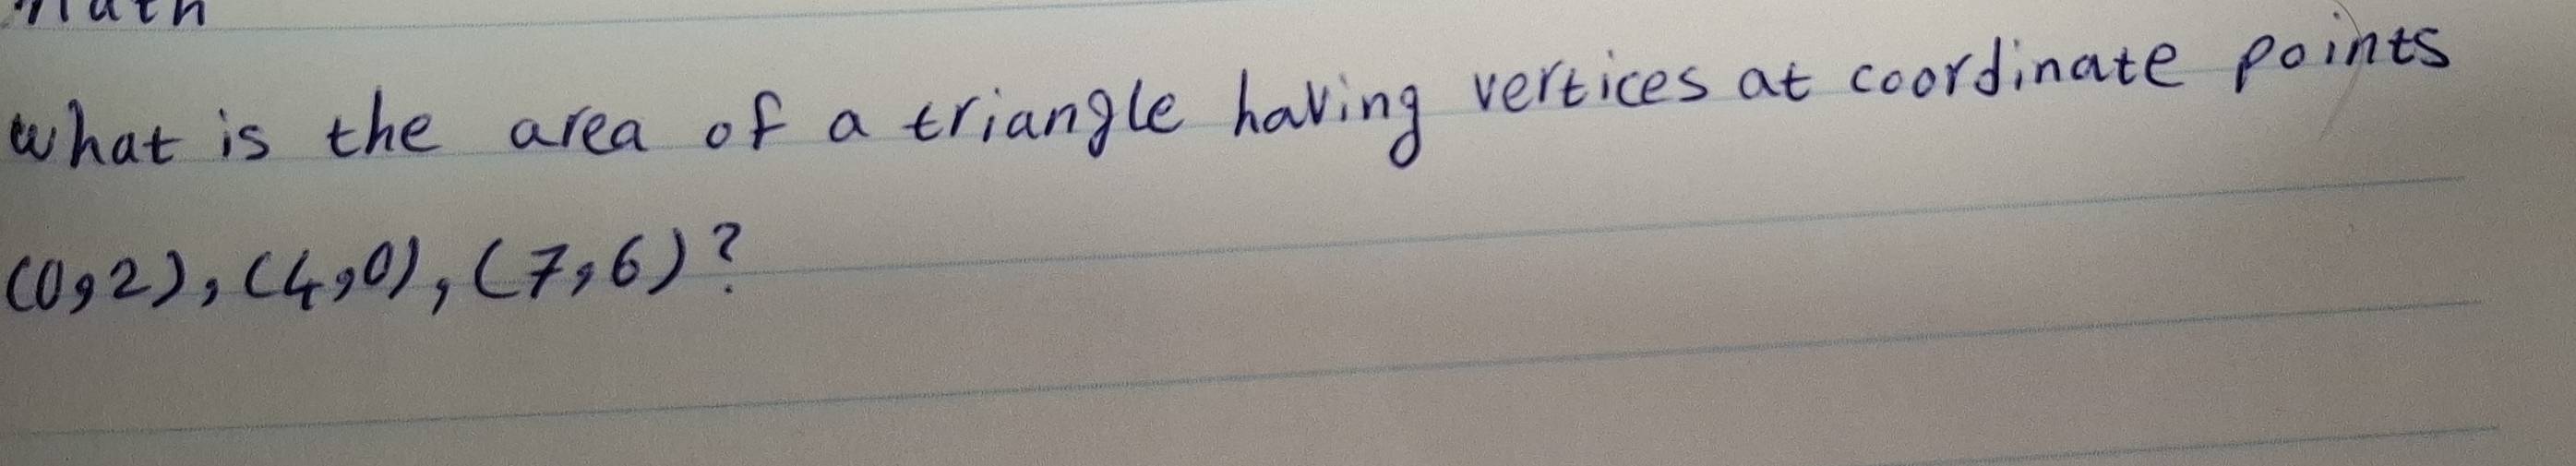 Math
What is the area of a triangle having vertices at coordinate points
(0,2), (4,0), (7,6)?